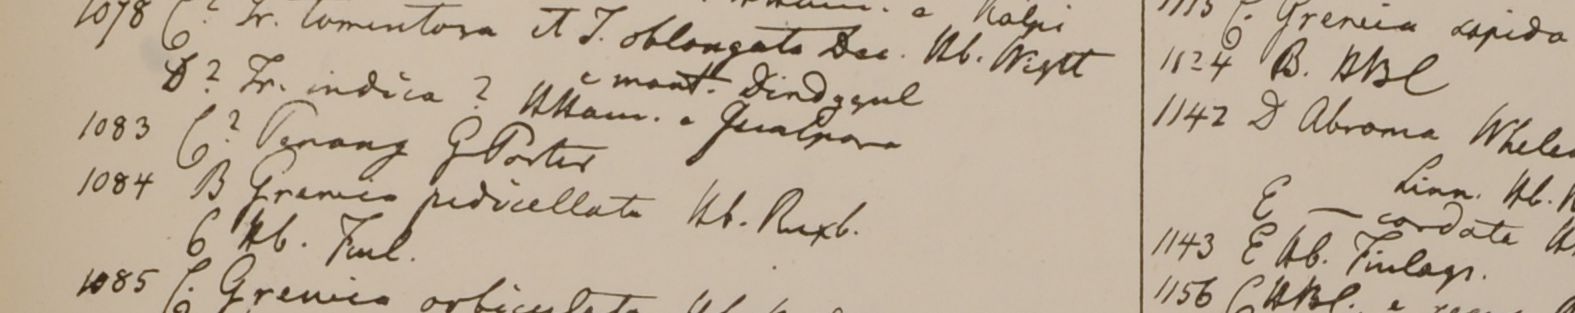 1078 C? Tr. tomentosa et T. oblongata Dec. Hb. Wight
e mont. Dindygul
D? Tr. indica ? HHam. e Gualpara
1083 C? Penang G Porter
1084 B Grewia pedicellata Hb. Roxb.
C Hb. Finl.
1085 C. Grewia orbiculata Hb.
1113 C. Grewia sapida
1124 B. HBC
1142 D Abroma
Linn. Hb.
E — cordata
1143 E Hb. Finlays.
1156 C HBC. e